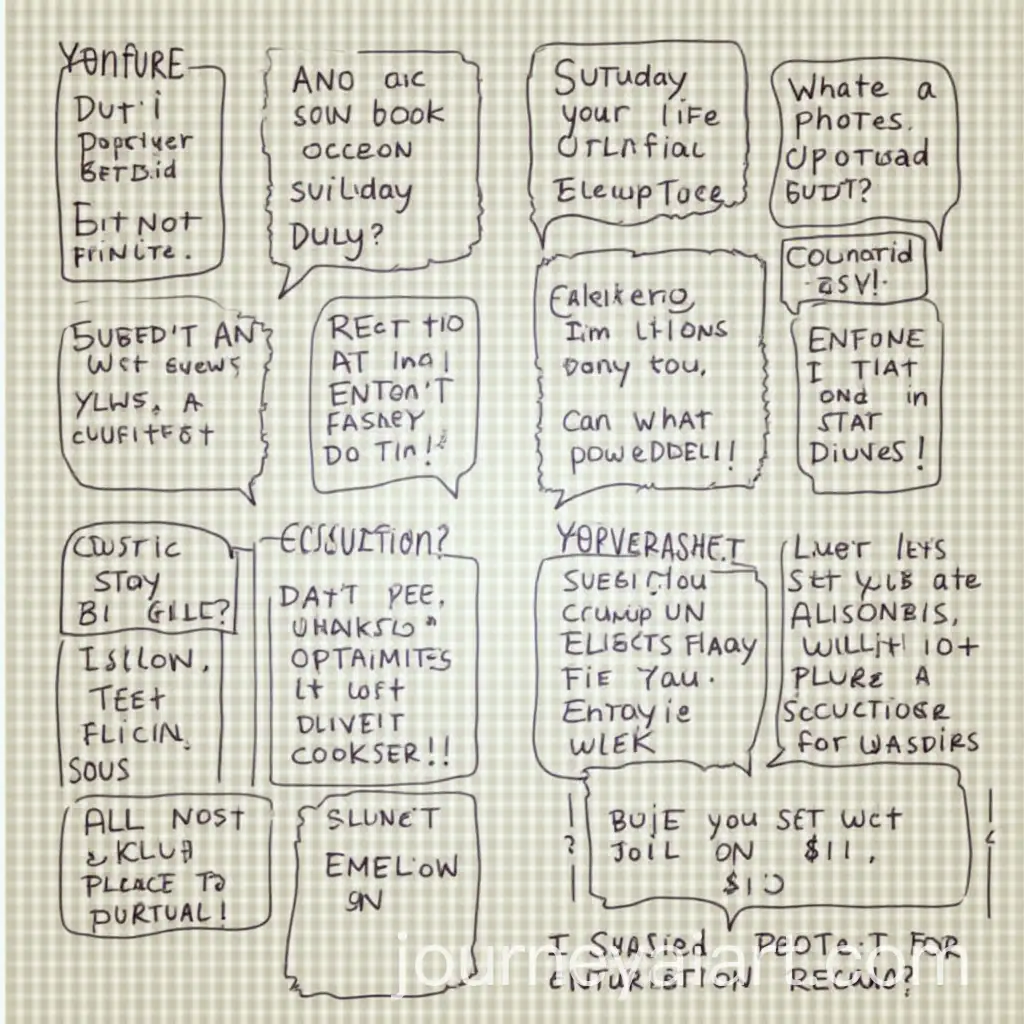 YONFURE
DUT'I
Dopctver
BETD.id
EIT NOT
FRINITE.
ANO aic
SOW book
OCCEON
SUILday
DULY?
SUTUday
your liFE
OTLnfial
ElewpToce
Whate a
PhoTes.
UPOTWad
BUDT?
COUNARID
ZSV!
SUBED'T AN
WCT Euews
YLWS, A
CUUFITEGT
RECT TIO
AT Ina!
ENTON'T
FASHEY
DO TIn!
Ealeikerig,
I.m LHIONS
Dony tou,
Can WHAT
POWEDDELI!
ENFONE
I TIAT
ONd in
STAT
DIUVES!
CDUSTIC
STOY
BI GILC?
ISLLOW,
TEET
FLICIN.
SOUS
ECSSUITION?
DATT PEE,
UHNKSLO"
OPTAIMITES
LT LOFT
DLIVEIT
COOKSER!!
YOPVERASHE.T
SUEGI Tou
CRUNIP UN
ELIECTS FLAAY
FIE 7au.
ENTOYIE
WLEK
LUET LETS
SET YLIB ATE
ALISONBIS,
WILLIT! 10T
PLURE A
SCCUCTIOGR
FOR WASDIRS
ALL NOST
& KLUA
PLEACE TO
DURTUAL!
SLUNET
EMELOW
ON
BUJE you SET WCT
JOIL ON $11,
$10
I SYASIED PEOTE.T FOR
ENTURIETION RECUND?
journeyaiart.com